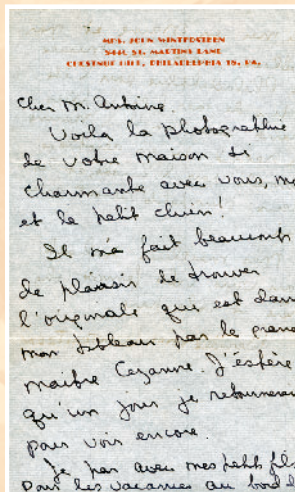 MRS. JOHN WINTERSTEEN
5440 ST. MARTINS LANE
CHESTNUT HILL, PHILADELPHIA 18, PA.
Cher M. Antoine.
Voila la photographie
de votre maison si
charmante avec vous, mo
et le petit chien!
Il m'a fait beaucoup
de plaisir de trouver
l'originale qui est dans
mon tableau par le grand
maitre Cezanne. J'éspère
qu'un jour je retournerai
pour voir encore.
Je par avec mes petit fils
pour les vacances au bord d